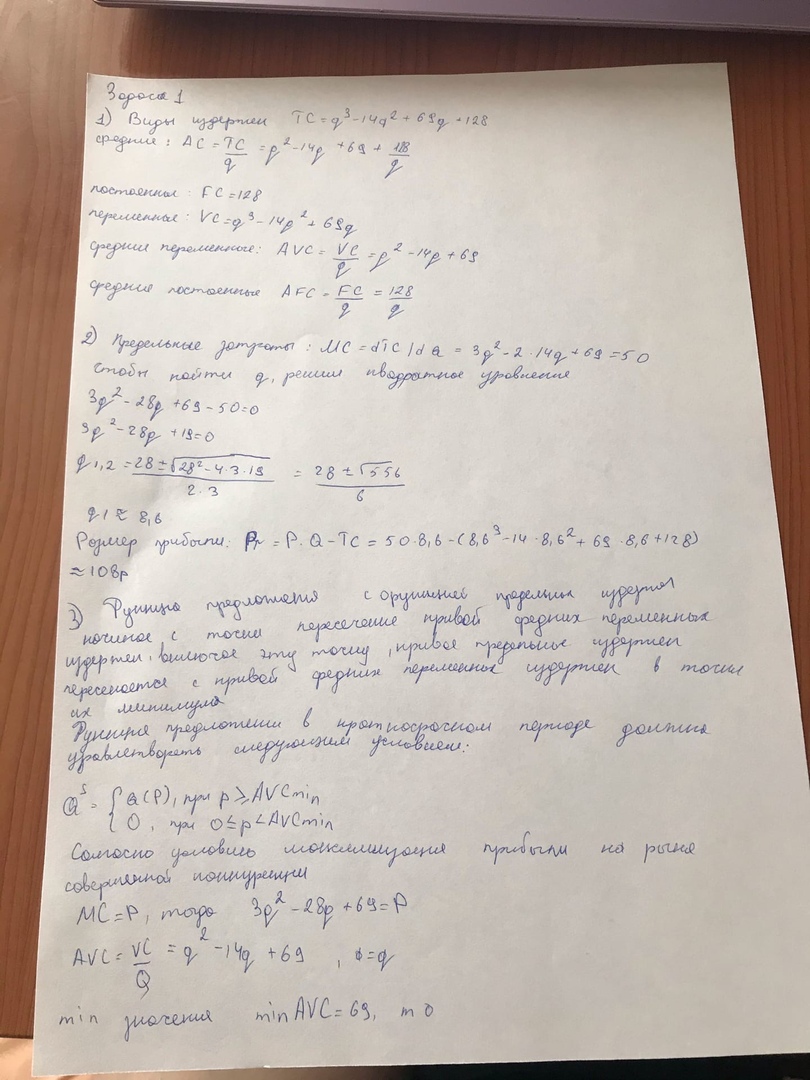 Задача 1
1) Виды издержек TC = q³-14q²+69q+128
средние: AC = TC/q = q²-14q+69+128/q
постоянная: FC=128
переменная: VC=q³-14q²+69q
средние переменные: AVC = VC/q = q²-14q+69
средние постоянные AFC = FC/q = 128/q
2) Предельные затраты: MC=dTC/dQ = 3q²-2·14q+69=50
чтобы найти q, решим квадратное уравнение
3q²-28q+69-50=0
3q²-28q+19=0
q1,2 = (28±√(28²-4·3·19))/(2·3) = (28±√556)/6
q1≈8,6
Размер прибыли: Pr = P·Q-TC = 50·8,6-(8,6³-14·8,6²+69·8,6+128)
≈108р
3) Функция предложения с функцией предельных издержек
начиная с точки пересечения кривой средних переменных
издержек, включая эту точку, кривая предельные издержек
пересекается с кривой средних переменных издержек в точки
их минимума
Функция предложении в краткосрочном периоде должна
удовлетворять следующим условием:
Qˢ = { Q(P), при p⩾AVCmin
{ 0, при 0≤p<AVCmin
Согласно условию максимизация прибыли на рынке
совершенной конкуренции
MC=P, тогда 3q²-28q+69=P
AVC = VC/Q = q²-14q+69, =q
min значения minAVC=69, то